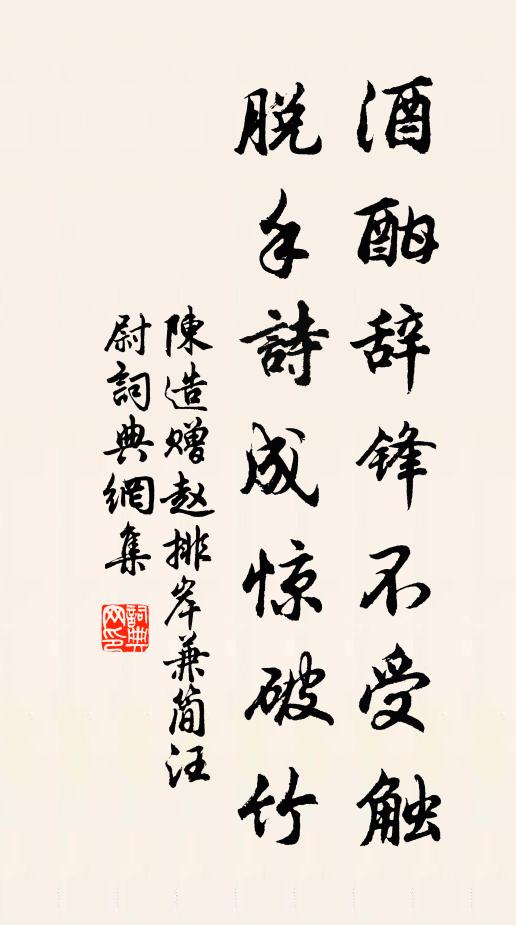 酒酣辞锋不受触
脱手詩成惊破竹
陳造赠赵排岸兼简汪
尉詞典網集
詞典
网印